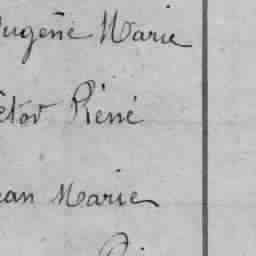 Eugène Marie
ctor Réné
ean Marie